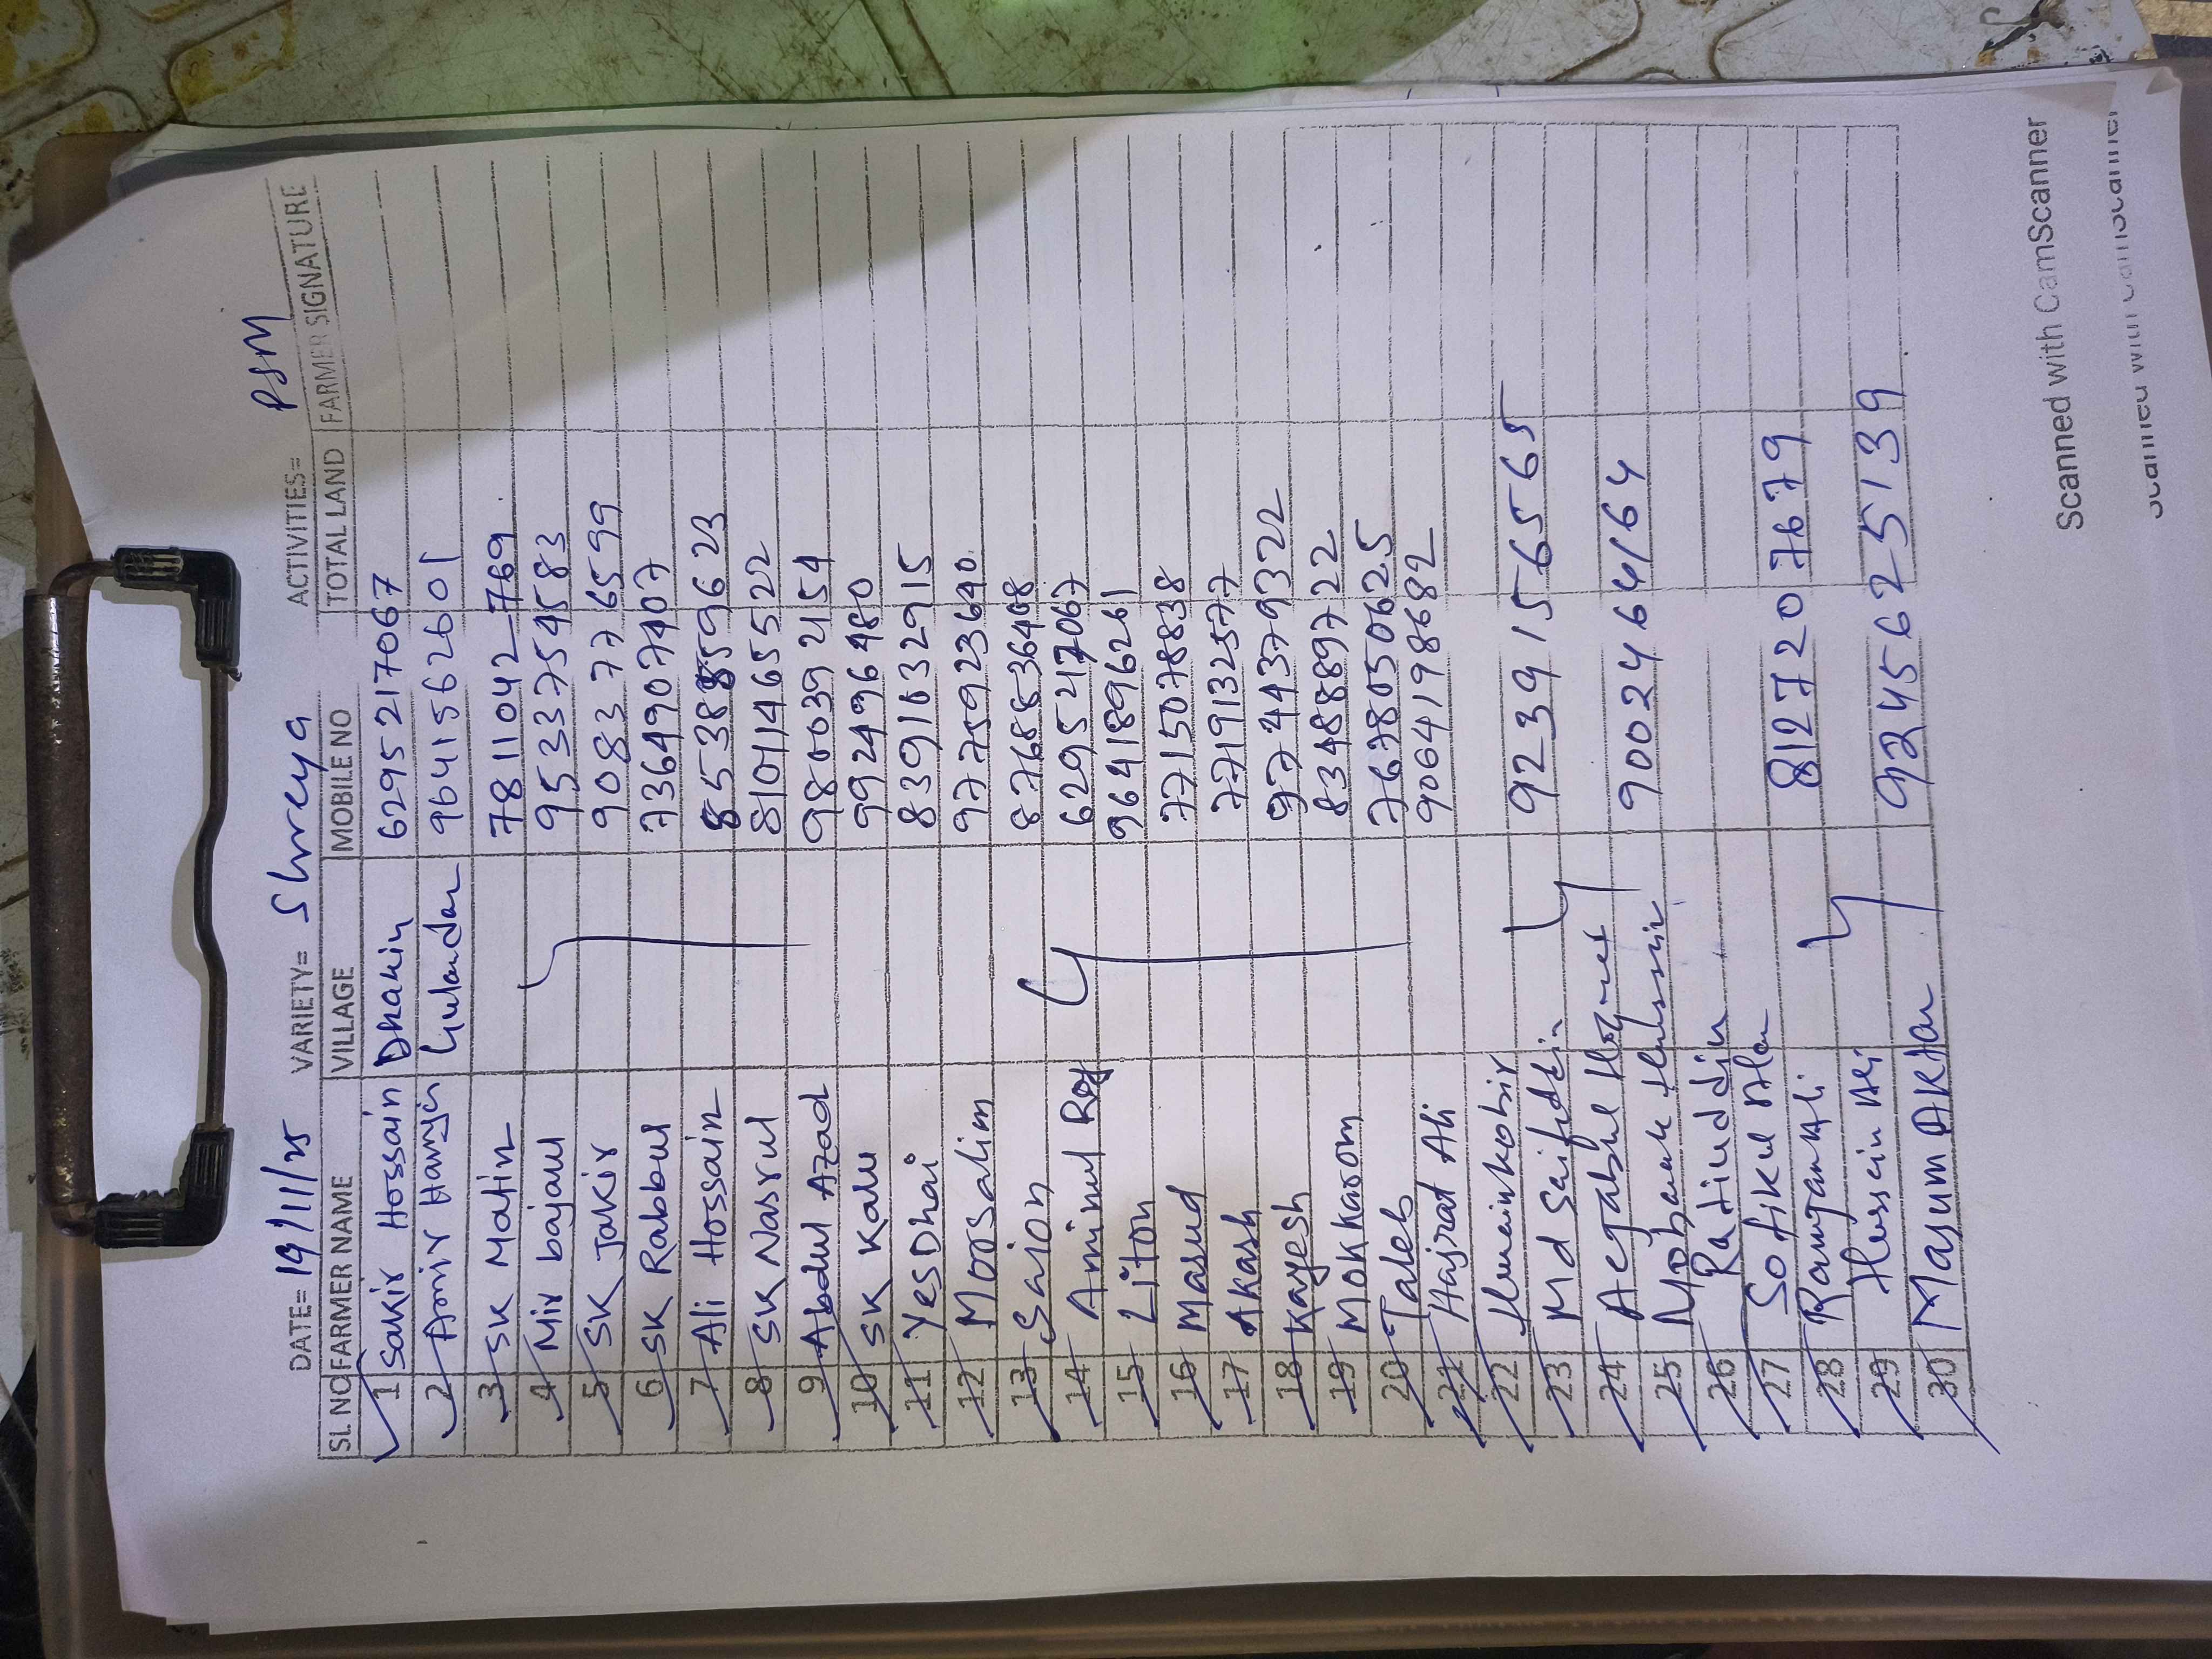 DATE= 19/11/25 VARIETY= Shreya ACTIVITIES= PSM
SL.NO FARMER NAME VILLAGE MOBILE NO TOTAL LAND FARMER SIGNATURE
1 Sakir Hossain Dhakin 6295217067
2 Amir Hamja 9641562601
3 SK Matin 7811042769
4 Mir bajaul 9533754583
5 SK Jakir 9083776599
6 SK Rabbul 7364907407
7 Ali Hossain 8538859623
8 SK Nasrul 8101465522
9 Abdul Azad 9800392154
10 SK Kalu 9924996480
11 Yes Dhai 8391632915
12 Moosalim 9775923640
13 Sajon 8768536408
14 Aminul Roy 6295417067
15 Liton 9641896261
16 Masud 7715078838
17 Akash 7719132577
18 Kayesh 9744379322
19 Mokkarom 8348889722
20 Taleb 7678050625
21 Hajrat Ali 9064198682
22 Humainkobir
23 Md Saifuddin 9239156565
24
25 9002464164
26 Rafiuddin
27 Sofikul Alam
28 Ramjan Ali 8127207679
29 Hussain Ali
30 Masum Aktar 9245625139
Scanned with CamScanner
Scanned with CamScanner